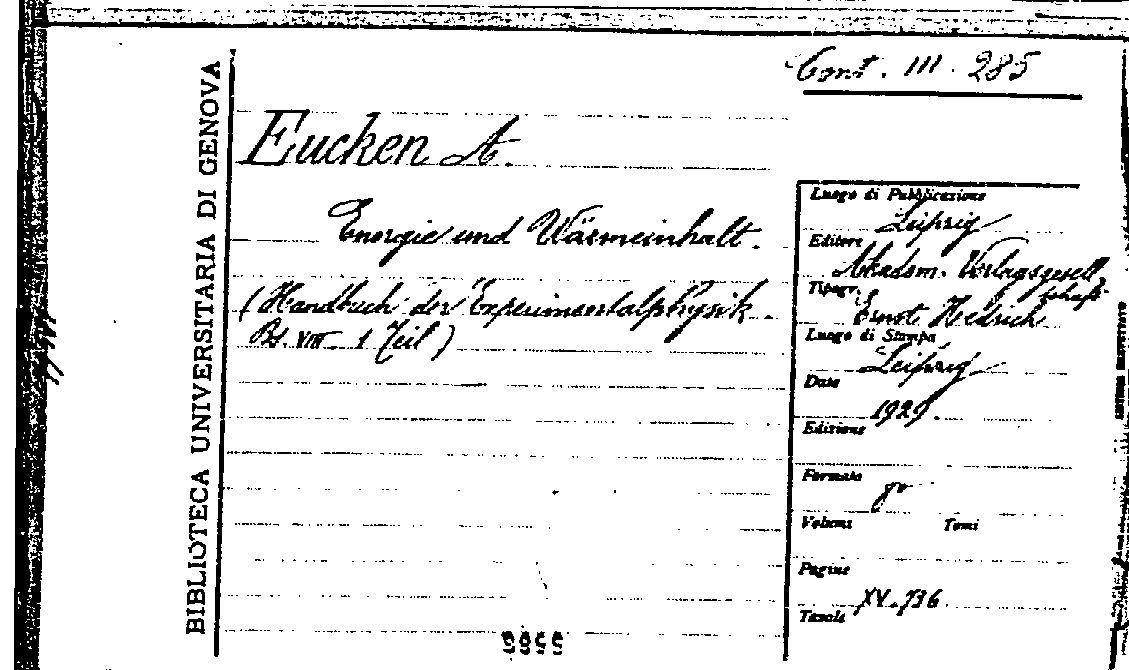 BIBLIOTECA UNIVERSITARIA DI GENOVA
Cont. III. 285
Eucken A.
Energie und Wärmeinhalt.
(Handbuch der Experimentalphysik.
Bd. VIII. 1 Teil)
Luogo di Pubblicazione
Leipzig
Editore
Akadem. Verlagsgesell
schaft
Tipogr.
Ernst Hedrich
Luogo di Stampa
Leipzig
Data
1929.
Edizione
Formato
8º
Volumi Tomi
Pagine
XV-736
Tavole